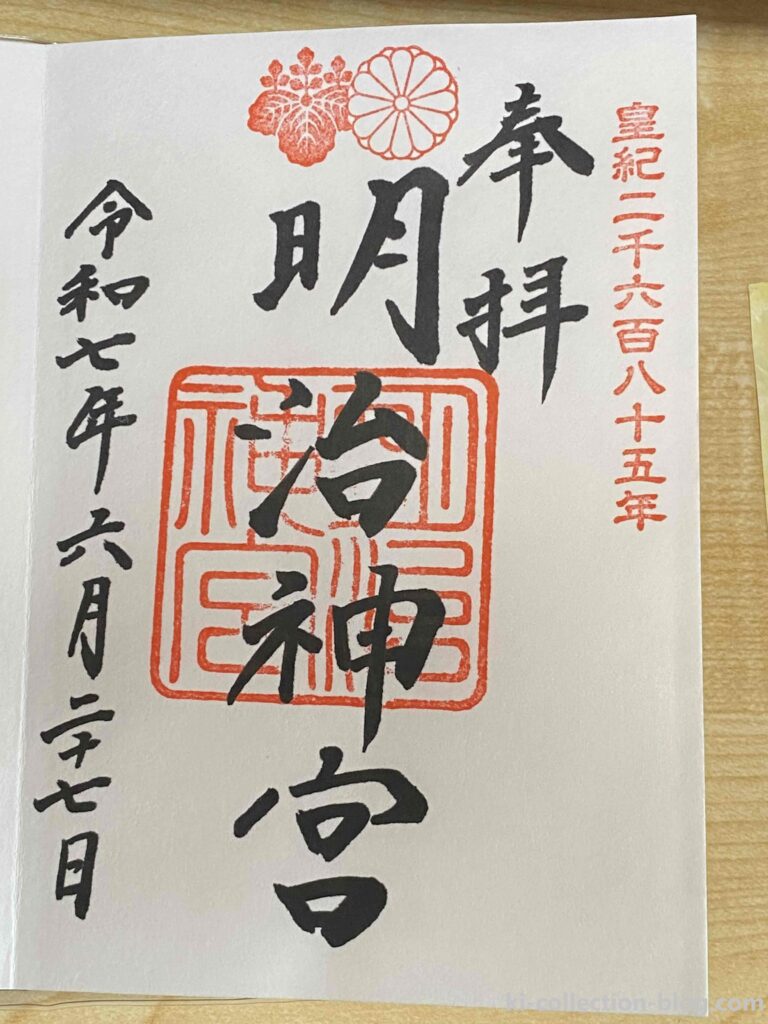 皇紀二千六百八十五年
奉拝
明治神宮
明治神宮
令和七年六月二十七日
ki-collection-blog.com